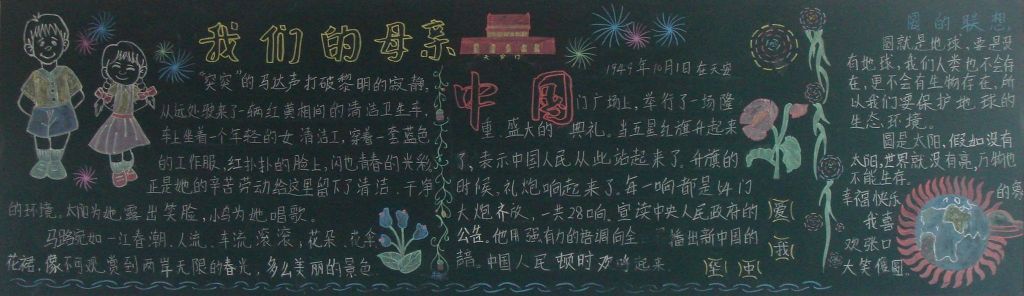 我们的母亲
中国
天安门
"突突"的马达声打破黎明的寂静,
从远处驶来了一辆红黄相间的清洁卫生车,
车上坐着一个年轻的女清洁工,穿着一套蓝色
的工作服,红扑扑的脸上,闪出青春的光彩,
正是她的辛苦劳动给这里留下了清洁、干净
的环境。太阳为她露出笑脸,小鸟为她唱歌。
马路宛如一江春潮,人流、车流滚滚;花朵、花伞
花裙,像不可观赏到两岸无限的春光,多么美丽的景色
1949年10月1日在天安
门广场上,举行了一场隆
重、盛大的典礼。当五星红旗升起来
了,表示中国人民从此站起来了,升旗的
时候,礼炮响起来了,每一响都是54门
大炮齐放,一共28响。宣读中央人民政府的
公告。他用强有力的语调向全 播出新中国的
中国人民顿时 起来
爱
我
中
圆的联想
圆就是地球,要是没
有地球,我们人类也不会存
在,更不会有生物存在,所
以我们要保护地球的
生态环境。
圆是太阳,假如没有
太阳,世界就没有亮,万物也
不能生存。
幸福快乐的
我喜
双张口
大笑